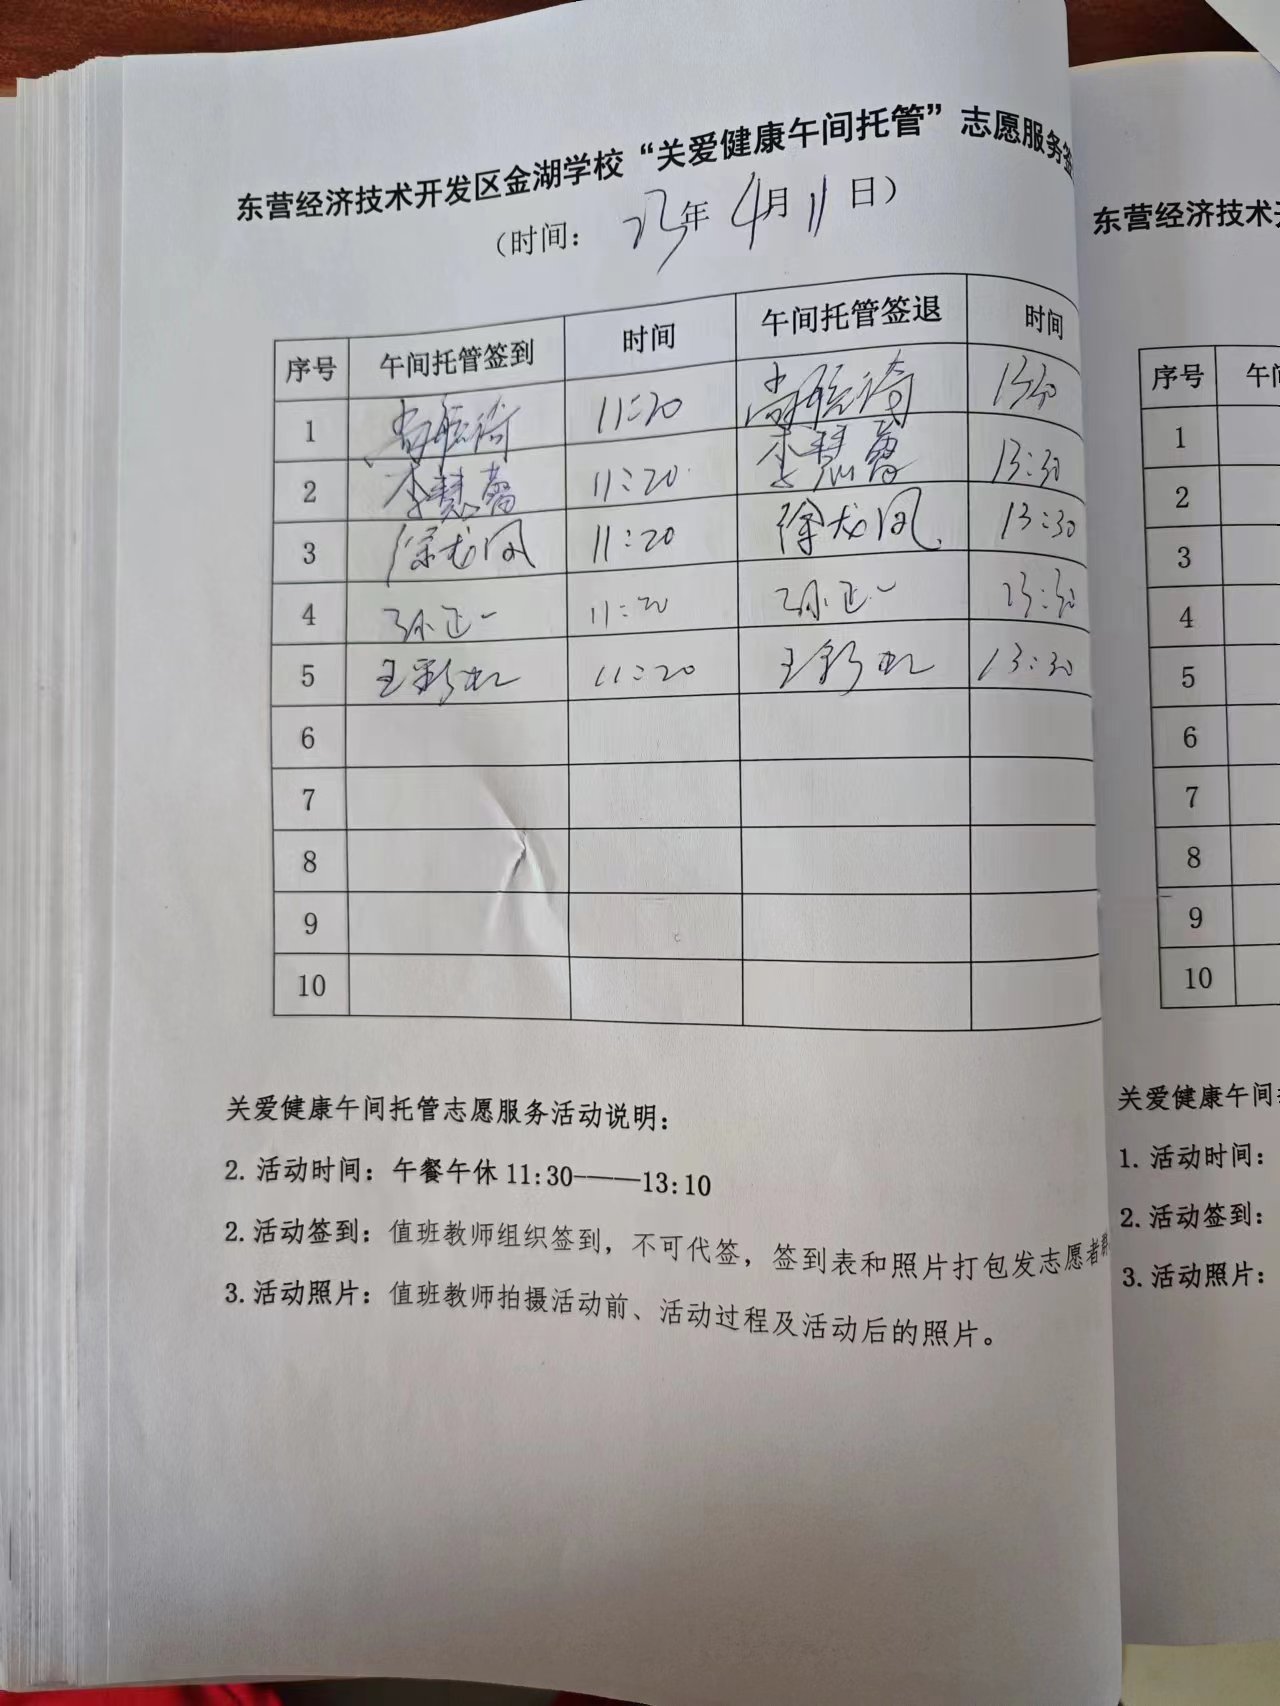 东营经济技术开发区金湖学校“关爱健康午间托管”志愿服务签
（时间： 23年 4月 11日）
序号 午间托管签到 时间 午间托管签退 时间
1 11:20
2 李慧蕾 11:20 李慧蕾 13:30
3 徐龙凤 11:20 徐龙凤 13:30
4 孙正一 11:20 孙正一 13:30
5 王彩虹 11:20 王彩虹 13:30
6
7
8
9
10
关爱健康午间托管志愿服务活动说明：
2. 活动时间：午餐午休 11:30——13:10
2. 活动签到：值班教师组织签到，不可代签，签到表和照片打包发志愿者群
3. 活动照片：值班教师拍摄活动前、活动过程及活动后的照片。
东营经济技术开
序号 午间
1
2
3
4
5
6
7
8
9
10
关爱健康午间
1. 活动时间：
2. 活动签到：
3. 活动照片：